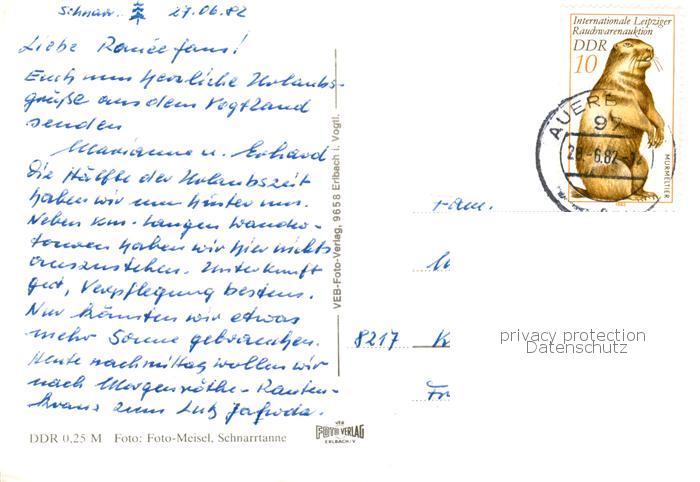 Schnarr. 27.06.82
Liebe Raneefans!
Euch nun herzliche Urlaubs-
grüße aus dem Vogtland
senden
Marianne u. Erhard
Die Hälfte der Urlaubszeit
haben wir nun hinter uns.
Neben km-langen Wander-
touren haben wir hier nichts
auszustehen. Unterkunft
gut, Verpflegung bestens.
Nur könnten wir etwas
mehr Sonne gebrauchen.
Heute nachmittag wollen wir
nach Morgenröthe-Rauten-
kranz zum
DDR 0,25 M Foto: Foto-Meisel, Schnarrtanne
VEB-Foto-Verlag, 9658 Erlbach i. Vogtl.
VEB
FOTO VERLAG
ERLBACH/V
Internationale Leipziger
Rauchwarenauktion
DDR
10
MURMELTIER
1982
AUERB
97
28.-6.82
Fam.
8217 K
Fr
privacy protection
Datenschutz